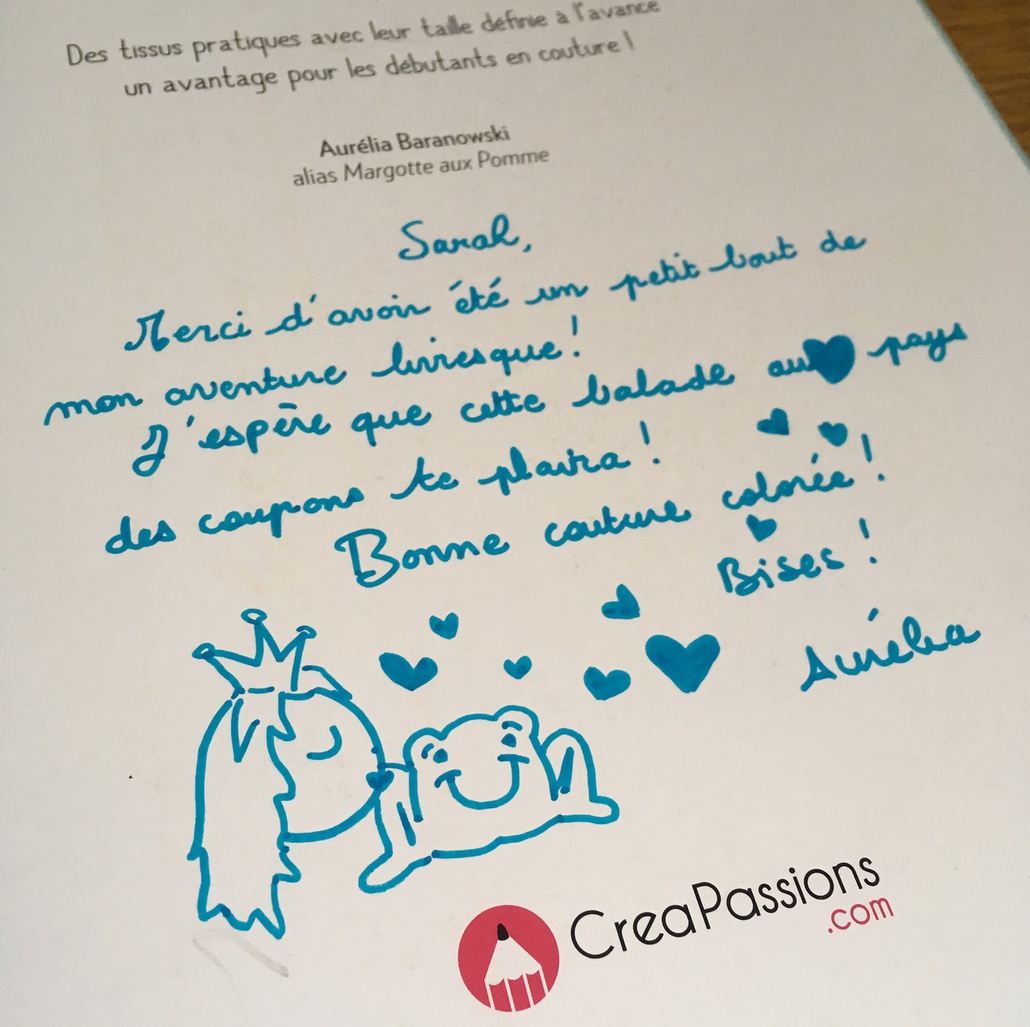 Des tissus pratiques avec leur taille définie à l'avance
un avantage pour les débutants en couture !
Aurélia Baranowski
alias Margotte aux Pomme
Sarah,
Merci d'avoir été un petit bout de
mon aventure livresque !
J'espère que cette balade au pays
des coupons te plaira !
Bonne couture colorée !
Bises !
Aurélia
CreaPassions
.com